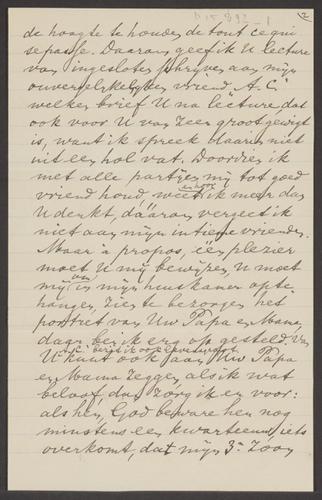 2
de hoogte te houden de tout ce qui
se passe. Daarom geef ik U lecture
van ingesloten schrijven aan mijn
onvergelijkelijken vriend A.C.
welken brief U na lecture dat
ook voor U van zeer groot gewigt
is, want ik spreek daarin niet
uit een hol vat. Doordien ik
met alle partijen mij tot goed
vriend houd en hoor
weet ik meer dan
U denkt, dáárom vergeet ik
niet aan mijn intieme vrienden.
Maar à propos, één plezier
moet U mij bewijzen U moet
mij om in mijn huiskamer op te
hangen, zien te bezorgen het
portret van Uw Papa en Mama
daar ben ik erg op gesteld
U kunt ook aan Uw Papa
en Mama zeggen, als ik wat
beloof, dan zorg ik er voor:
als hen, God beware hen nog
minstens een kwart eeuw, iets
overkomt, dat mijn 3e Zoon